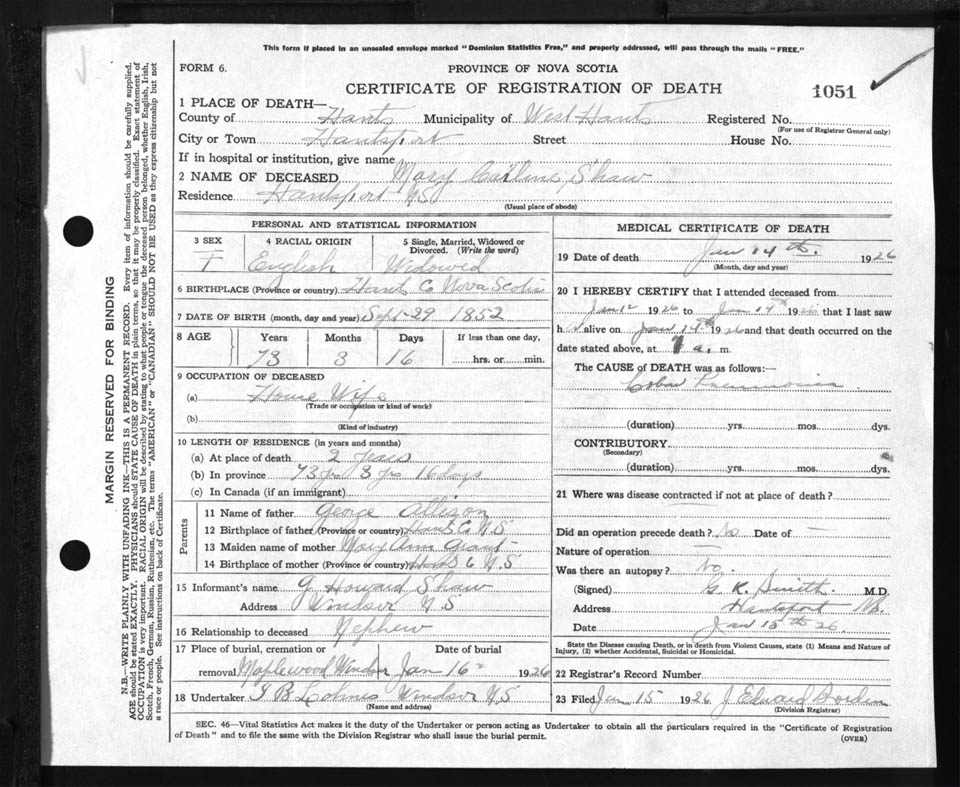 This form if placed in an unsealed envelope marked "Dominion Statistics Free," and properly addressed, will pass through the mails "FREE."
FORM 6.
PROVINCE OF NOVA SCOTIA
CERTIFICATE OF REGISTRATION OF DEATH
1051
1 PLACE OF DEATH—
County of Hants Municipality of West Hants Registered No.
(For use of Registrar General only)
City or Town Hantsport Street House No.
If in hospital or institution, give name
2 NAME OF DECEASED Mary Shaw
Residence Hantsport NS
(Usual place of abode)
PERSONAL AND STATISTICAL INFORMATION
3 SEX 4 RACIAL ORIGIN 5 Single, Married, Widowed or Divorced. (Write the word)
F English Widowed
6 BIRTHPLACE (Province or country) Hants Co Nova Scotia
7 DATE OF BIRTH (month, day and year) Sept 29 1852
8 AGE Years Months Days If less than one day,
73 3 16 hrs. or min.
9 OCCUPATION OF DECEASED
(a) House Wife
(Trade or occupation or kind of work)
(b)
(Kind of industry)
10 LENGTH OF RESIDENCE (in years and months)
(a) At place of death 2 Years
(b) In province 73 yrs 3 yrs 16 days
(c) In Canada (if an immigrant)
Parents
11 Name of father George Allison
12 Birthplace of father (Province or country) Hants Co N.S
13 Maiden name of mother Mary Ann Grant
14 Birthplace of mother (Province or country) Hants Co N.S
15 Informant's name G Howard Shaw
Address Windsor N S
16 Relationship to deceased Nephew
17 Place of burial, cremation or removal Maplewood Windsor Date of burial Jan 16 1926
18 Undertaker Windsor N.S
(Name and address)
MEDICAL CERTIFICATE OF DEATH
19 Date of death Jan 14th. 1926
(Month, day and year)
20 I HEREBY CERTIFY that I attended deceased from
Jan 12 1926 to Jan 14th 1926 that I last saw
h alive on Jan 14th 1926 and that death occurred on
date stated above, at a. m.
The CAUSE of DEATH was as follows:
Lobar Pneumonia
(duration) yrs. mos. dys.
CONTRIBUTORY
(Secondary)
(duration) yrs. mos. dys.
21 Where was disease contracted if not at place of death?
Did an operation precede death? No Date of —
Nature of operation —
Was there an autopsy? No.
(Signed) G. K. Smith. M.D.
Address Hantsport N.S.
Date Jan 15th 26.
State the Disease causing Death, or in death from Violent Causes, state (1) Means and Nature of Injury, (2) whether Accidental, Suicidal or Homicidal.
22 Registrar's Record Number
23 Filed Jan 15 1926 J Edward Borden
(Division Registrar)
SEC. 46—Vital Statistics Act makes it the duty of the Undertaker or person acting as Undertaker to obtain all the particulars required in the "Certificate of Registration
of Death" and to file the same with the Division Registrar who shall issue the burial permit.
(OVER)
MARGIN RESERVED FOR BINDING
N.B.—WRITE PLAINLY WITH UNFADING INK—THIS IS A PERMANENT RECORD. Every item of information should be carefully supplied.
AGE should be stated EXACTLY. PHYSICIANS should STATE CAUSE OF DEATH in plain terms, so that it may be properly classified. Exact statement of
OCCUPATION is very important. RACIAL ORIGIN will be described by stating to what people or tongue the deceased person belonged, whether English, Irish,
Scotch, French, German, Russian, Ruthenian, etc. The terms "AMERICAN" or "CANADIAN" SHOULD NOT BE USED as they express citizenship but not
a race or people. See instructions on back of Certificate.